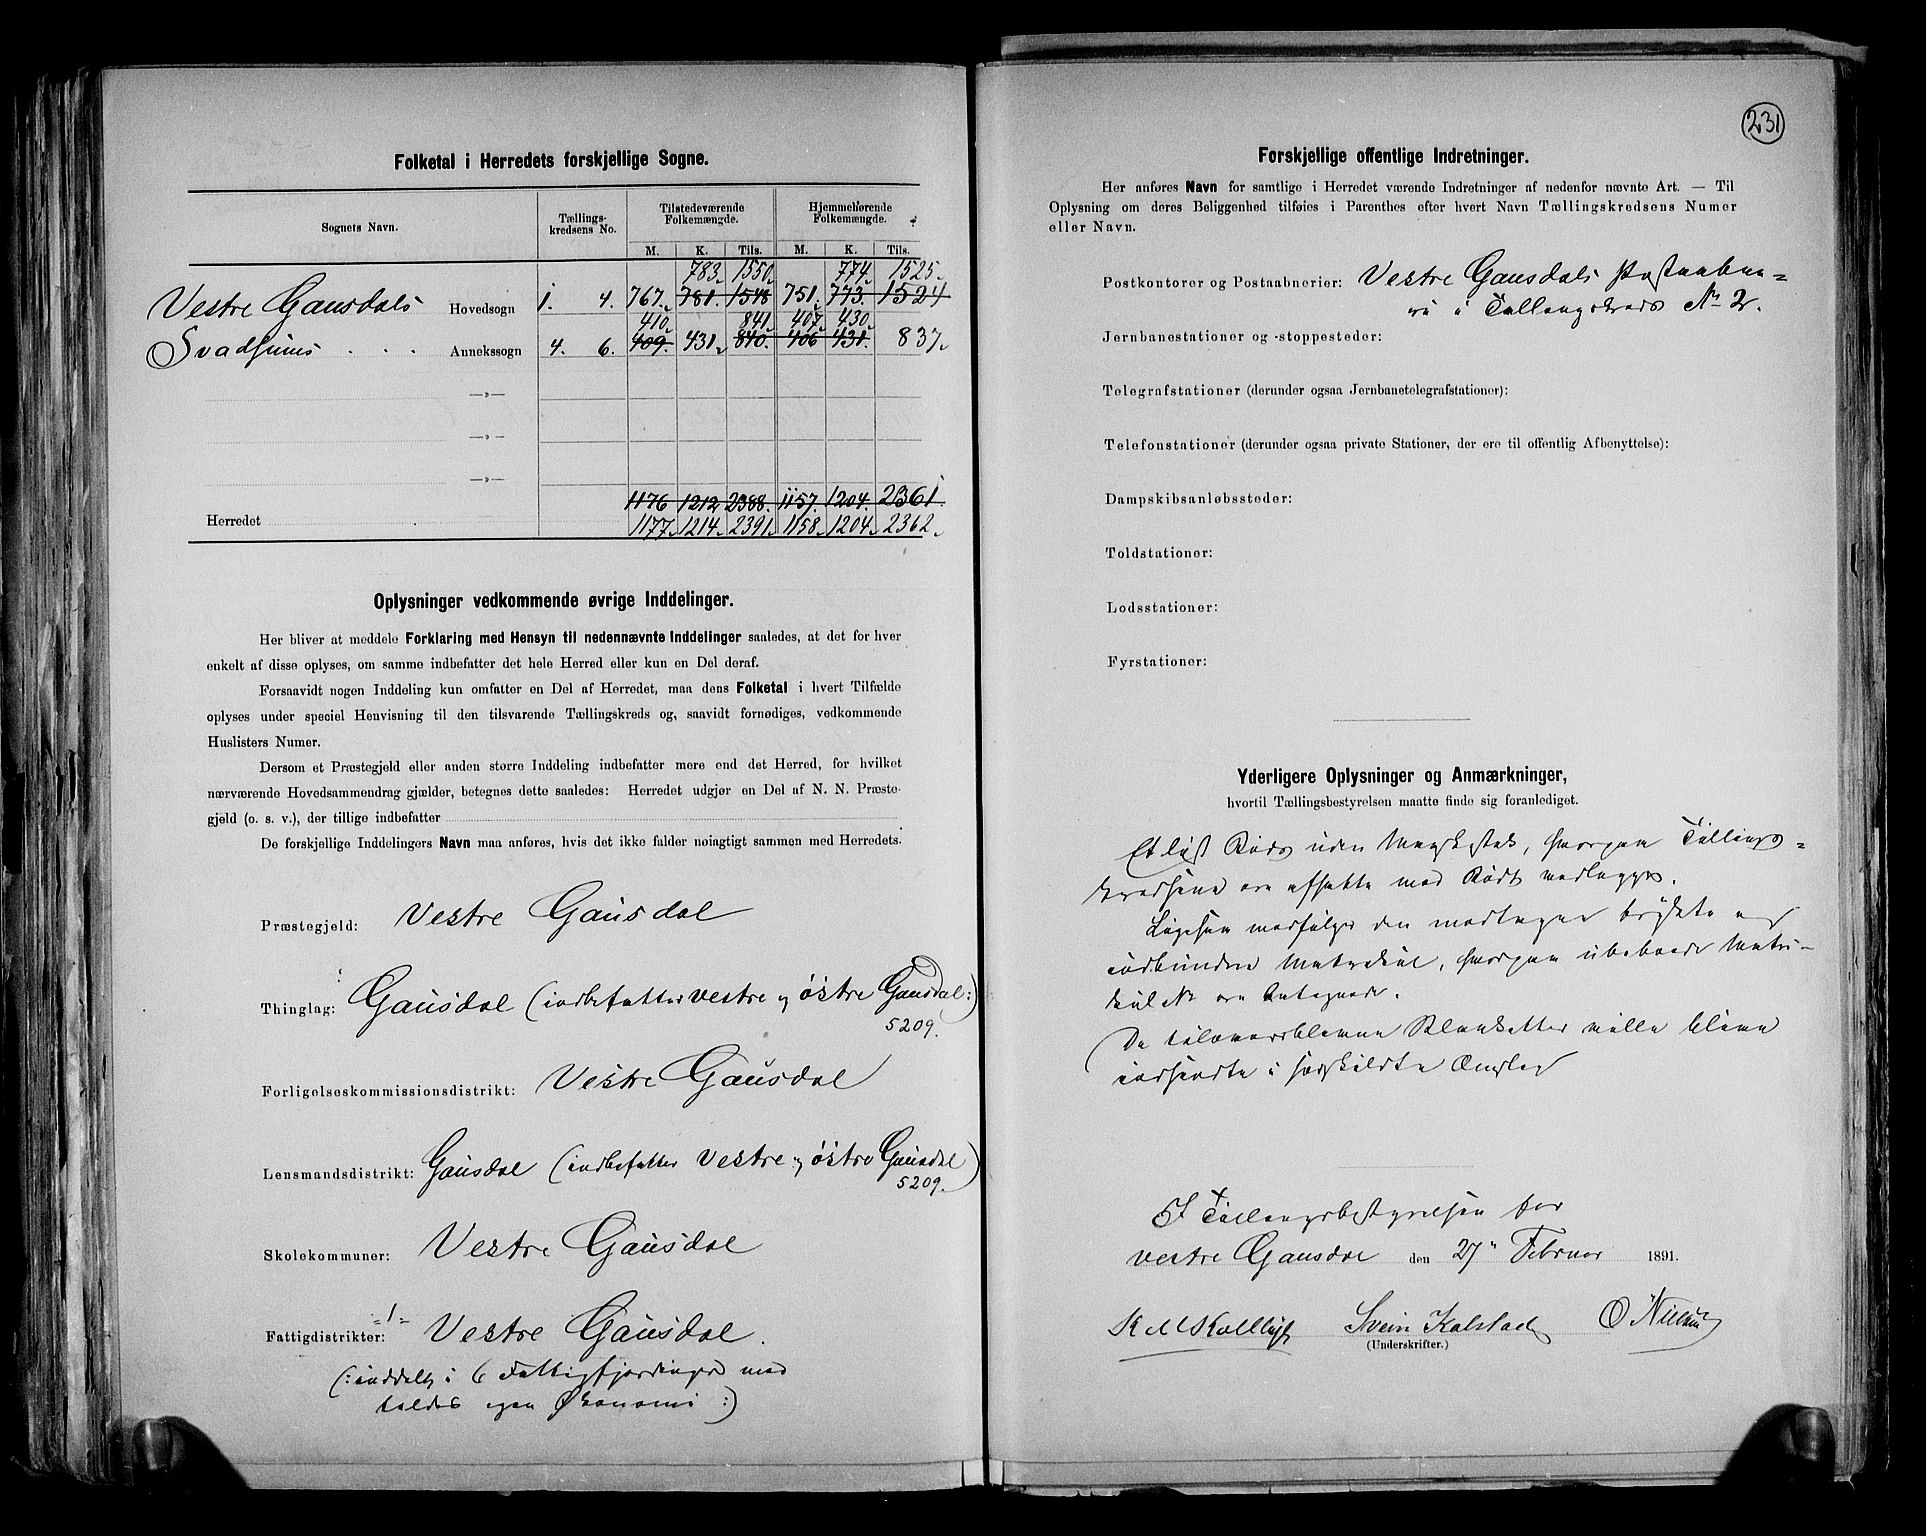 Folketal i Herredets forskjellige Sogne.
Sognets Navn.
Tællings-
kredsens No.
Tilstedeværende
Folkemængde.
Hjemmehørende
Folkemængde.
M. K. Tils. M. K. Tils.
783. 1550. 774. 1525.
Vestre Gausdals Hovedsogn 1. 4. 767. 781. 1548 751. 773. 1524
410. 841. 407. 430.
Svadsums . . . Annekssogn 4. 6. 409. 431. 840. 406 431. 837.
—»—
—»—
—»—
1176 1212 2388. 1157. 1204. 2361.
Herredet 1177. 1214. 2391. 1158. 1204. 2362.
Oplysninger vedkommende øvrige Inddelinger.
Her bliver at meddele Forklaring med Hensyn til nedennævnte Inddelinger saaledes, at det for hver
enkelt af disse oplyses, om samme indbefatter det hele Herred eller kun en Del deraf.
Forsaavidt nogen Inddeling kun omfatter en Del af Herredet, maa dens Folketal i hvert Tilfælde
oplyses under speciel Henvisning til den tilsvarende Tællingskreds og, saavidt fornødiges, vedkommende
Huslisters Numer.
Dersom et Præstegjeld eller anden større Inddeling indbefatter mere end det Herred, for hvilket
nærværende Hovedsammendrag gjælder, betegnes dette saaledes: Herredet udgjør en Del af N. N. Præste-
gjeld (o. s. v.), der tillige indbefatter
De forskjellige Inddelingers Navn maa anføres, hvis det ikke falder nøiagtig sammen med Herredets.
Præstegjeld: Vestre Gausdal
Thinglag: Gausdal (indbefatter vestre og østre Gausdal:)
5209.
Forligelseskommissionsdistrikt: Vestre Gausdal
Lensmandsdistrikt: Gausdal (indbefatter vestre og østre Gausdal)
5209.
Skolekommuner: Vestre Gausdal
=1=
Fattigdistrikter: Vestre Gausdal.
(:inddelt i 6 Fattigfjerdinger med
heldes egen Økonomi:)
231
Forskjellige offentlige Indretninger.
Her anføres Navn for samtlige i Herredet værende Indretninger af nedenfor nævnte Art. — Til
Oplysning om deres Beliggenhed tilføies i Parenthes efter hvert Navn Tællingskredsens Numer
eller Navn.
Postkontorer og Postaabnerier: Vestre Gausdals Postaabne=
ri i Tællingskreds No 2.
Jernbanestationer og -stoppesteder:
Telegrafstationer (derunder ogsaa Jernbanetelegrafstationer):
Telefonstationer (derunder ogsaa private Stationer, der ere til offentlig Afbenyttelse):
Dampskibsanløbssteder:
Toldstationer:
Lodsstationer:
Fyrstationer:
Yderligere Oplysninger og Anmærkninger,
hvortil Tællingsbestyrelsen maatte finde sig foranlediget.
Et løst Kort uden hvorpaa Tællings=
kredsene ere afsatte med Rødt vedlægges.
Ligesaa medfølger den modtagne trykte og
indbundne Matrikul, hvorpaa ubeboede Matri-
kul No ere antegnede.
De tiloversblevne Blanketter ville blive
indsendte i særskildte Omslag
I Tællingsbestyrelsen for
vestre Gausdal den 27" Februar 1891.
Svein Kalstad O Nielsen
(Underskrifter.)